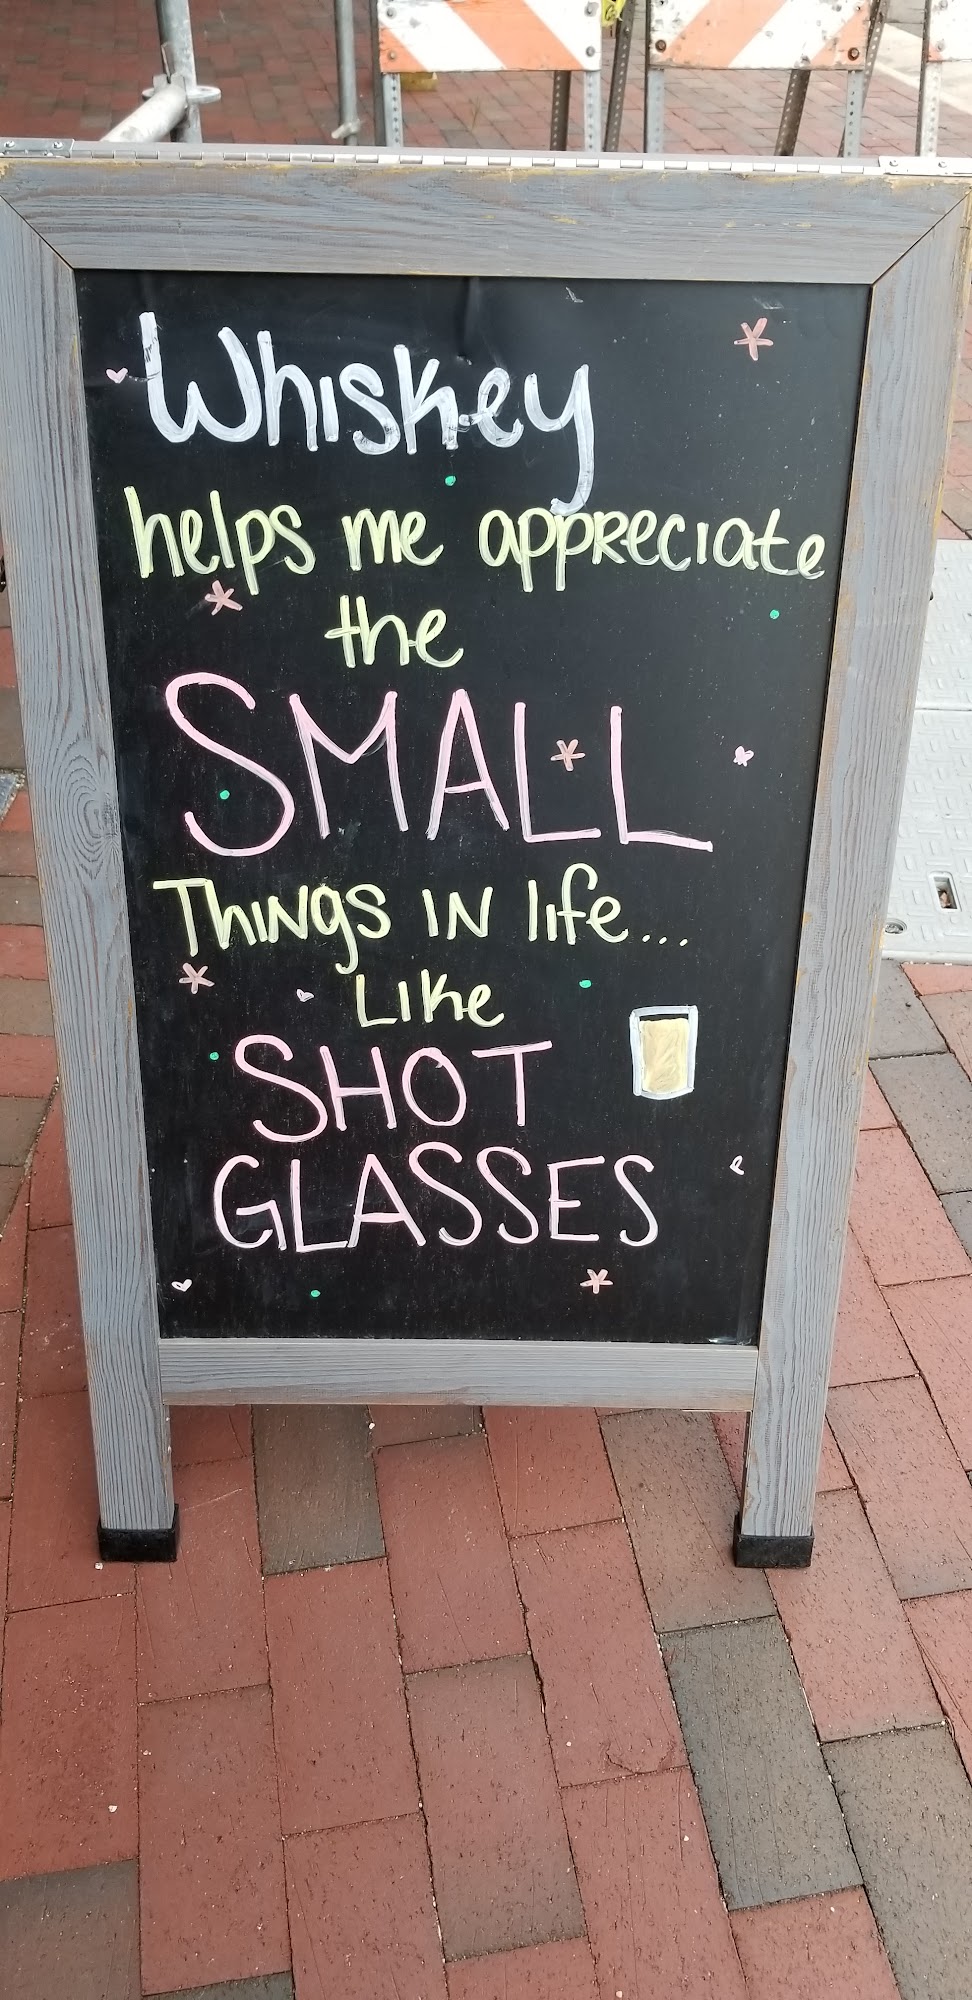 Whiskey
helps me appreciate
the
SMALL
Things IN life...
Like
SHOT
GLASSES